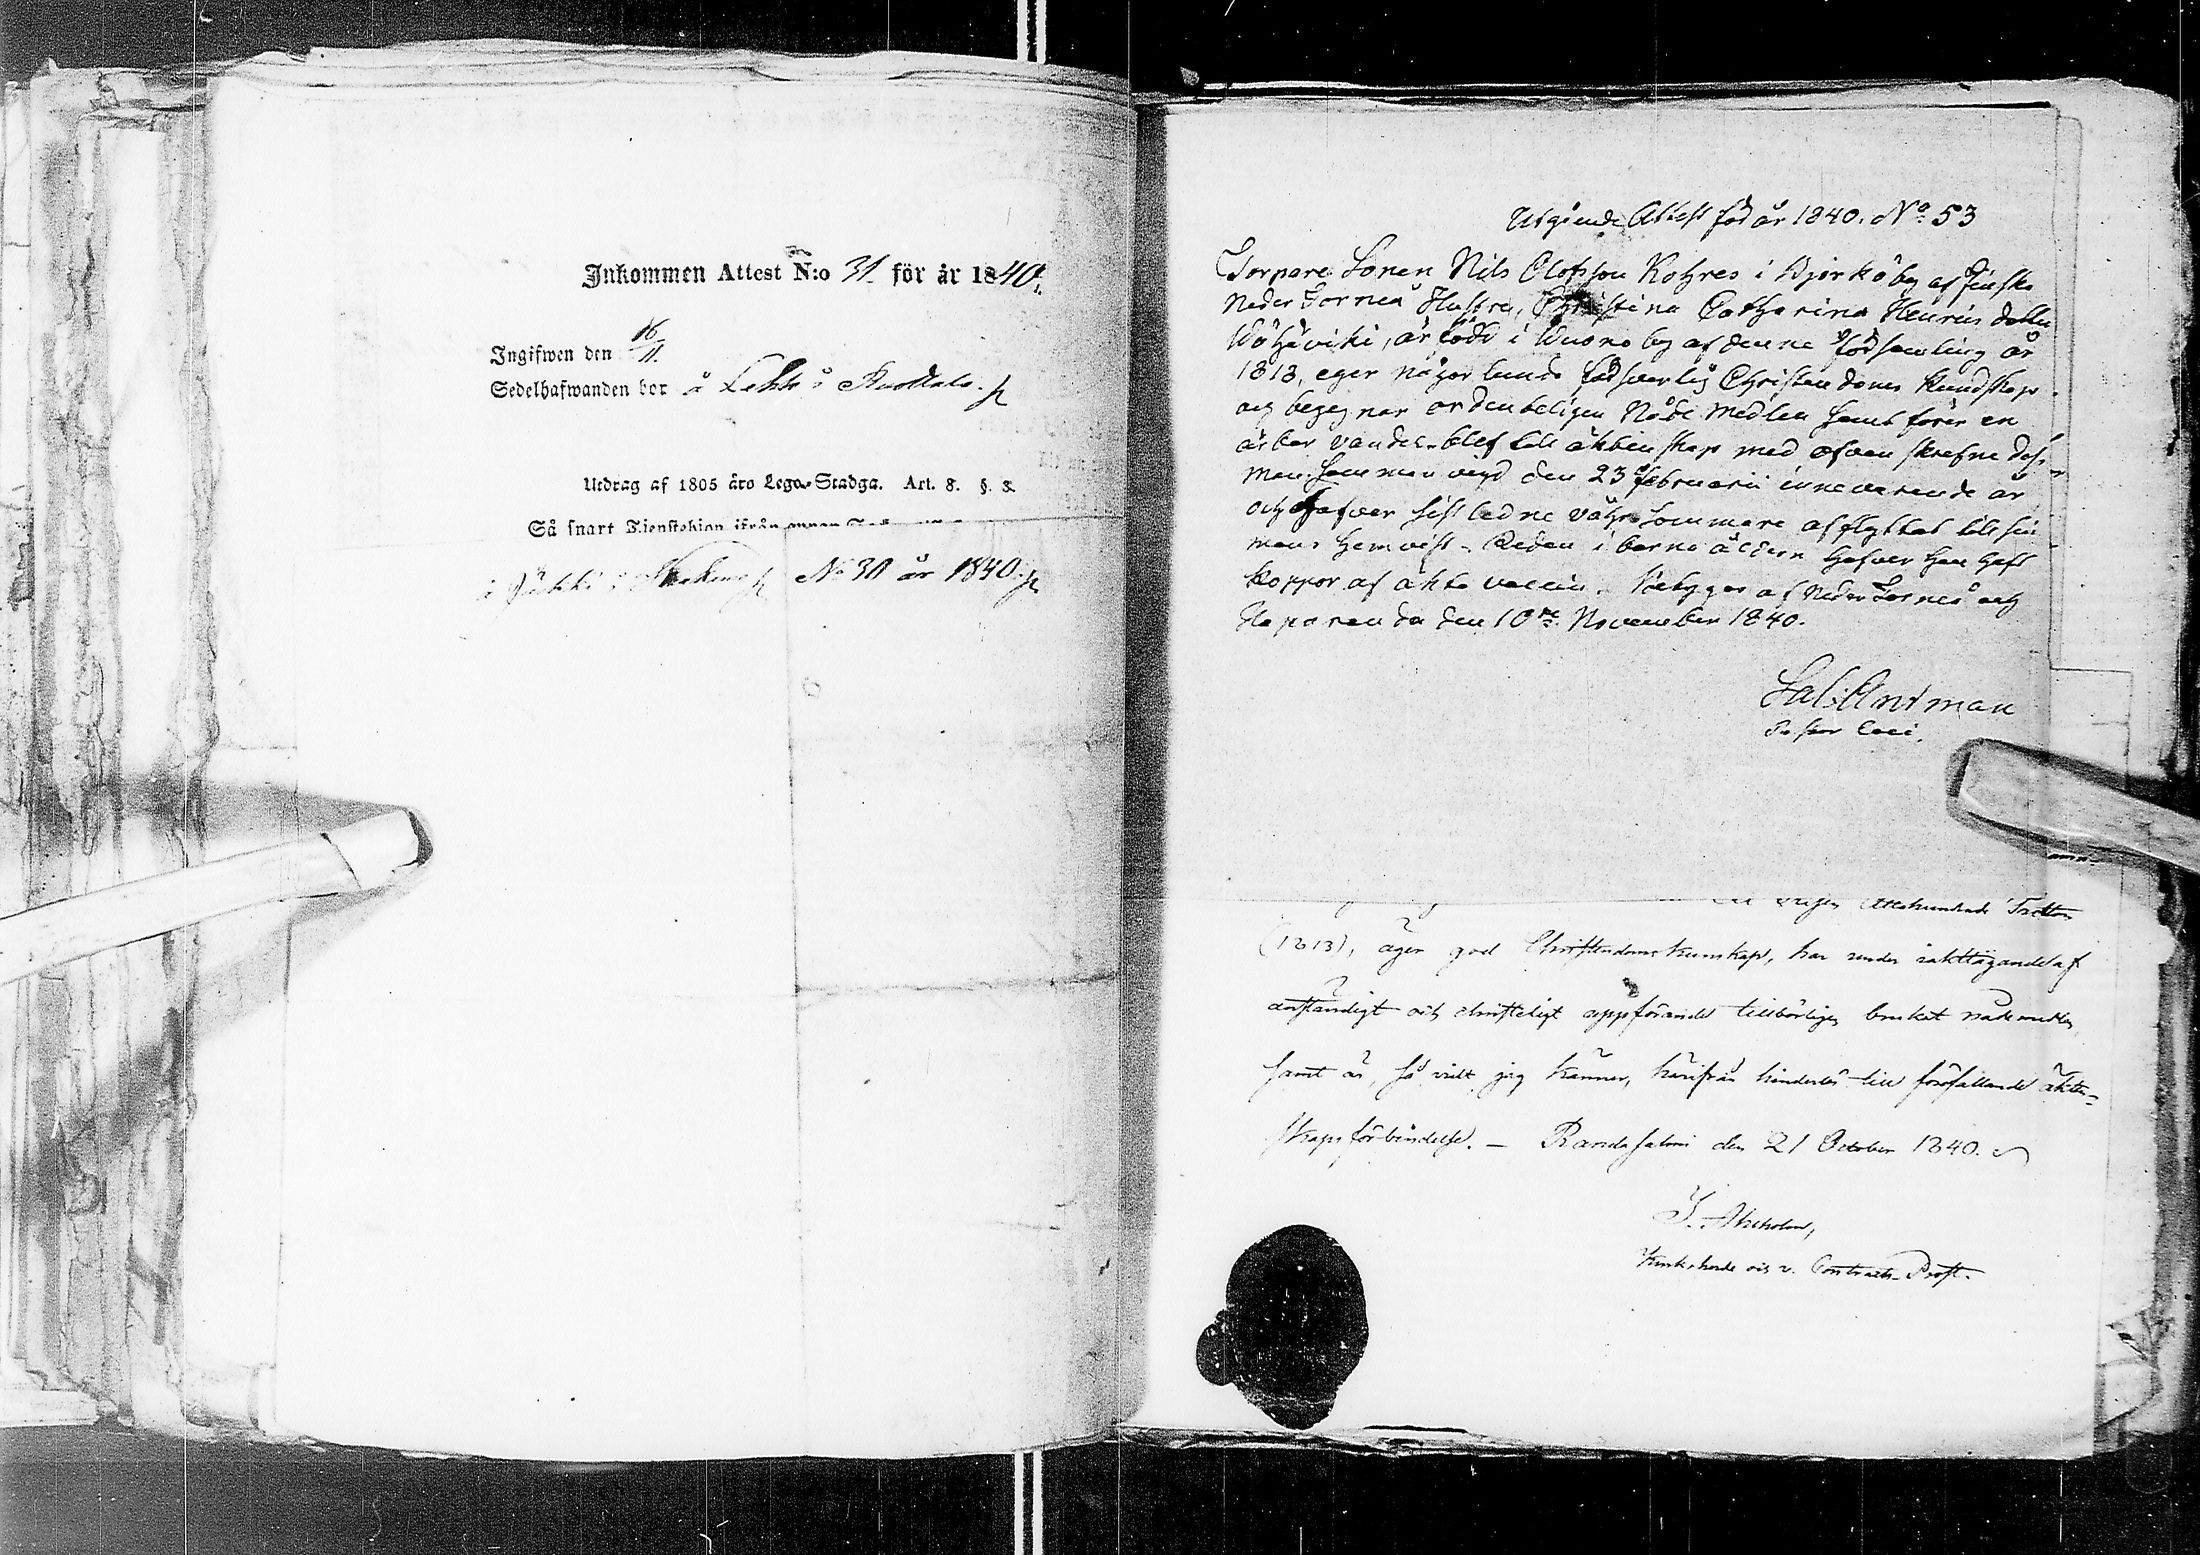 Inkommen Attest N:o 31 för år 1840.
Ingifwen den 16/11.
Sedelhafwanden bor å Lehto i
Utdrag af 1805 års Lego-Stadga. Art. 8. §. 3.
Så snart Tjenstehion ifrån annan
i N:o 30 år 1840.
Utgående Attest för år 1840. No: 53
Torpare Sonen Nils Olofsson Kohres i Björköby af finska
Neder Torneå Hustru, Christina Catharina Henrics dotter
, är född i Wuono by af denne församling år
1813, eger någorlunda försvarlig Christendoms kundskap
och begagnar ordenteligen Nåde medlen samt förer en
ärbar vandel. blef till äktenskap med ofvan skrefne Dess
man samman vigd den 23 februarii innevarande år
och hafver sistledne Sommare afflyttat till sin
mans hemvist. Redan i barna åldern hafver hon haft
koppor af äkta vaccin. betygar af Neder Torneå och
Haparanda den 10de November 1840.
Sal: Antman
Pastor Loci.
Attahundrade Tretton
(1813), äger god Christendoms kunskap, har under iakttagande af
anständigt och christeligt uppförande tillbörligen brukat nådemedlen
samt är, så vidt jag känner, härifrån hinderlös till förefallande äkten=
skapsförbindelse. — Randasalmi den 21 October 1840.
Kyrkoherde och v. Contracts-Prost.